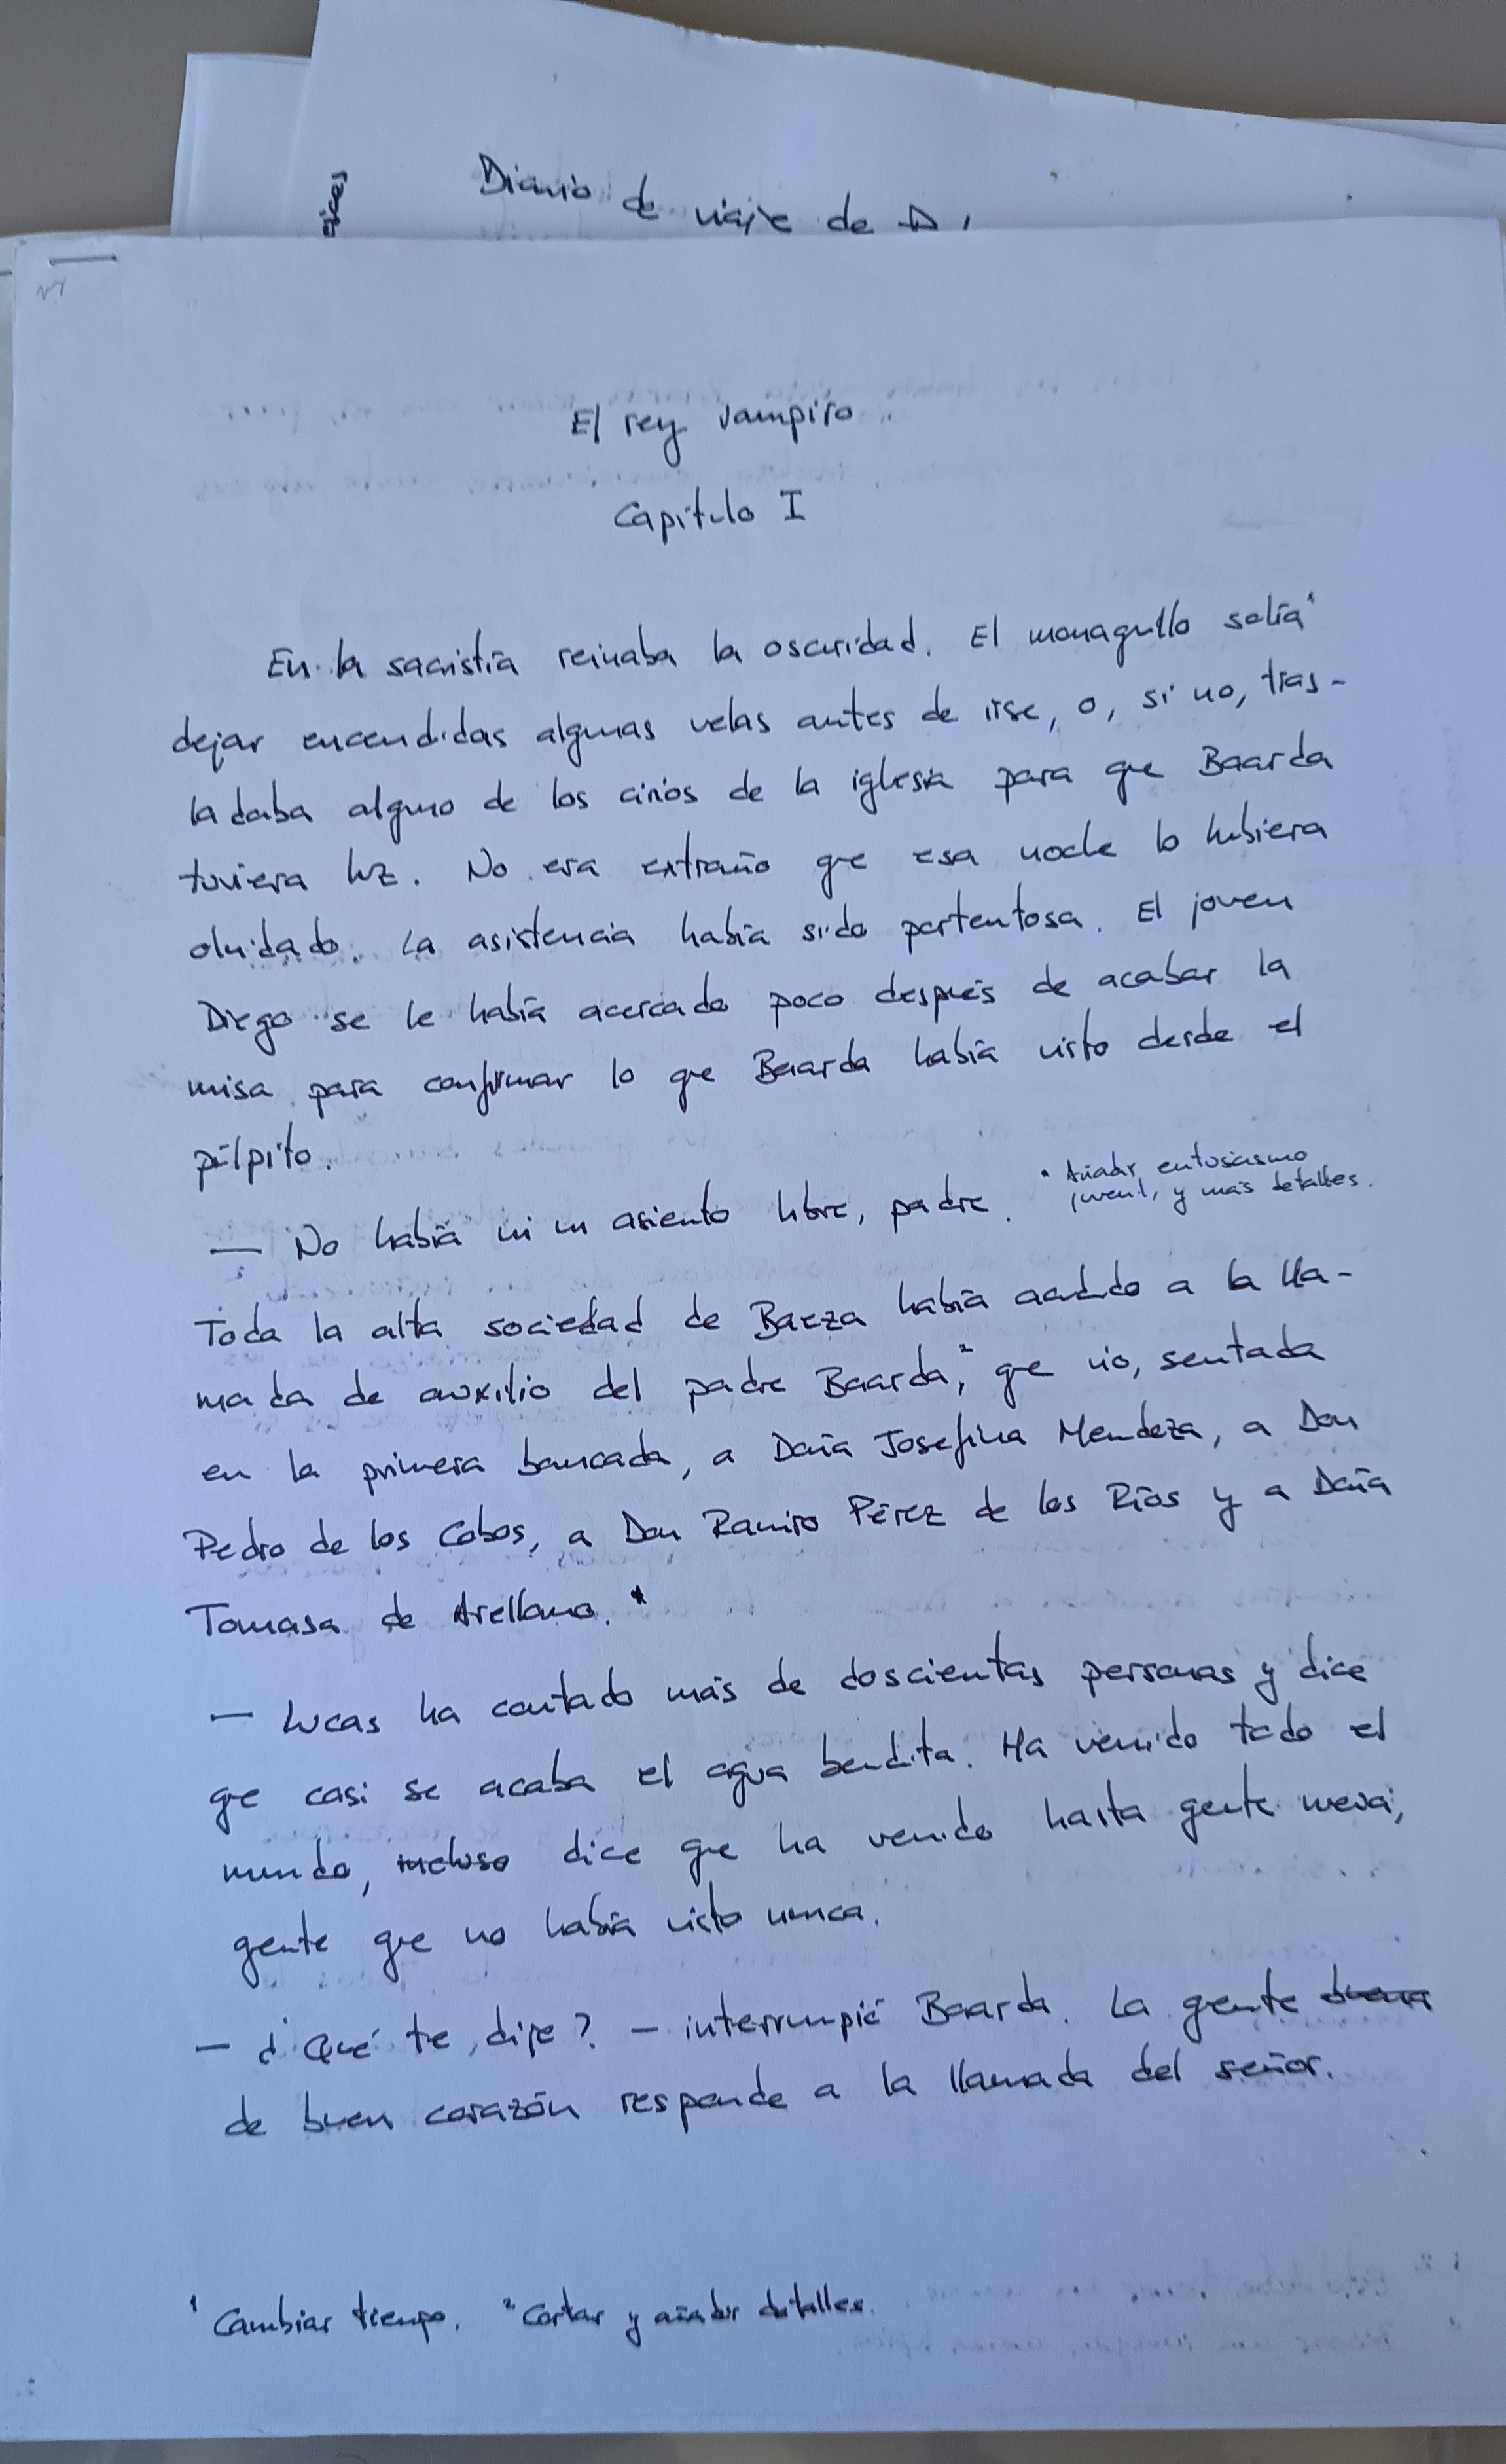 Diario de viaje de D
El rey vampiro
Capítulo I
En la sacristía reinaba la oscuridad. El monaguillo solía¹
dejar encendidas algunas velas antes de irse, o, si no, tras-
ladaba alguno de los cirios de la iglesia para que Baarda
tuviera luz. No era extraño que esa noche lo hubiera
olvidado. La asistencia había sido portentosa. El joven
Diego se le había acercado poco después de acabar la
misa para confirmar lo que Baarda había visto desde el
púlpito.
— No había ni un asiento libre, padre.
* Añadir entusiasmo
juvenil, y más detalles.
Toda la alta sociedad de Baeza había acudido a la lla-
mada de auxilio del padre Baarda,² que vio, sentada
en la primera bancada, a Doña Josefina Mendoza, a Don
Pedro de los Cobos, a Don Ramiro Pérez de los Ríos y a Doña
Tomasa de Arellano. *
— Lucas ha contado más de doscientas personas y dice
que casi se acaba el agua bendita. Ha venido todo el
mundo, incluso dice que ha venido hasta gente nueva,
gente que no había visto nunca.
— ¿Qué te dije? — interrumpió Baarda. La gente buena
de buen corazón responde a la llamada del señor.
¹ Cambiar tiempo. ² Cortar y añadir detalles.